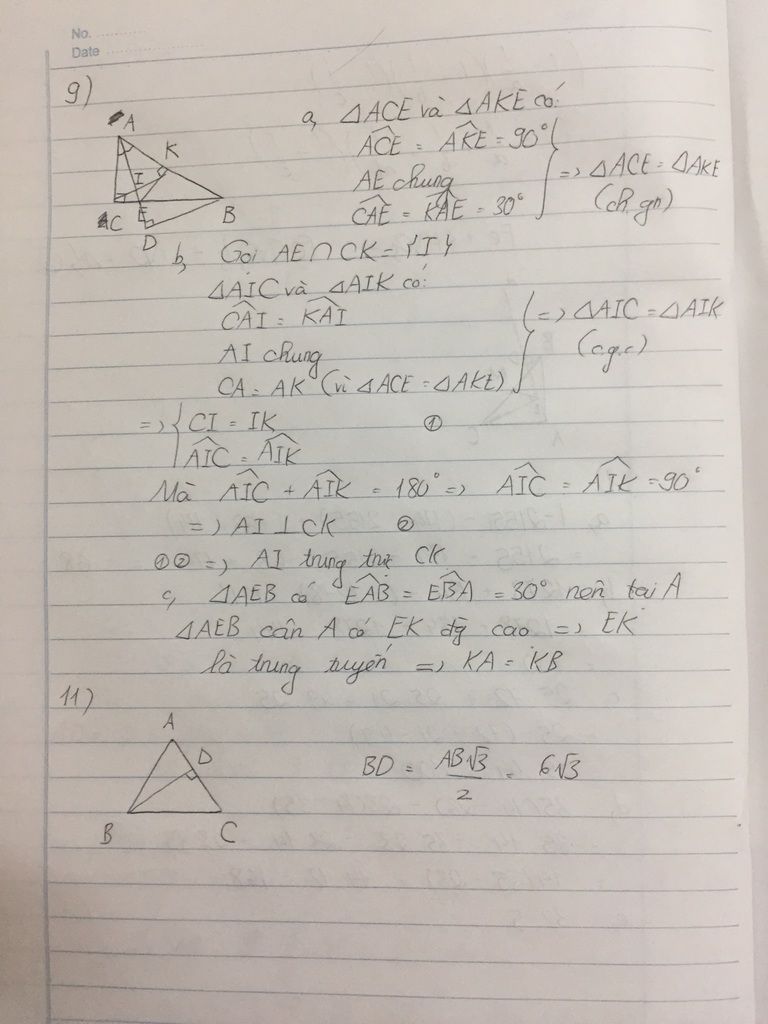 No.
Date
9)
A
K
I
C
E
B
D
a, △ACE và △AKE có:
∠ACE = ∠AKE = 90°
AE chung
∠CAE = ∠KAE = 30°
=> △ACE = △AKE
(ch gn)
b, Gọi AE ∩ CK = {I}
△AIC và △AIK có:
∠CAI = ∠KAI
AI chung
CA = AK (vì △ACE = △AKE)
=> △AIC = △AIK
(c.g.c)
=> { CI = IK ①
∠AIC = ∠AIK
Mà ∠AIC + ∠AIK = 180° => ∠AIC = ∠AIK = 90°
=> AI ⊥ CK ②
①② => AI trung trực CK
c, △AEB có ∠EAB = ∠EBA = 30° nên tại A
△AEB cân A có EK đg cao => EK
là trung tuyến => KA = KB
11)
A
D
B
C
BD = AB√3/2 = 6√3